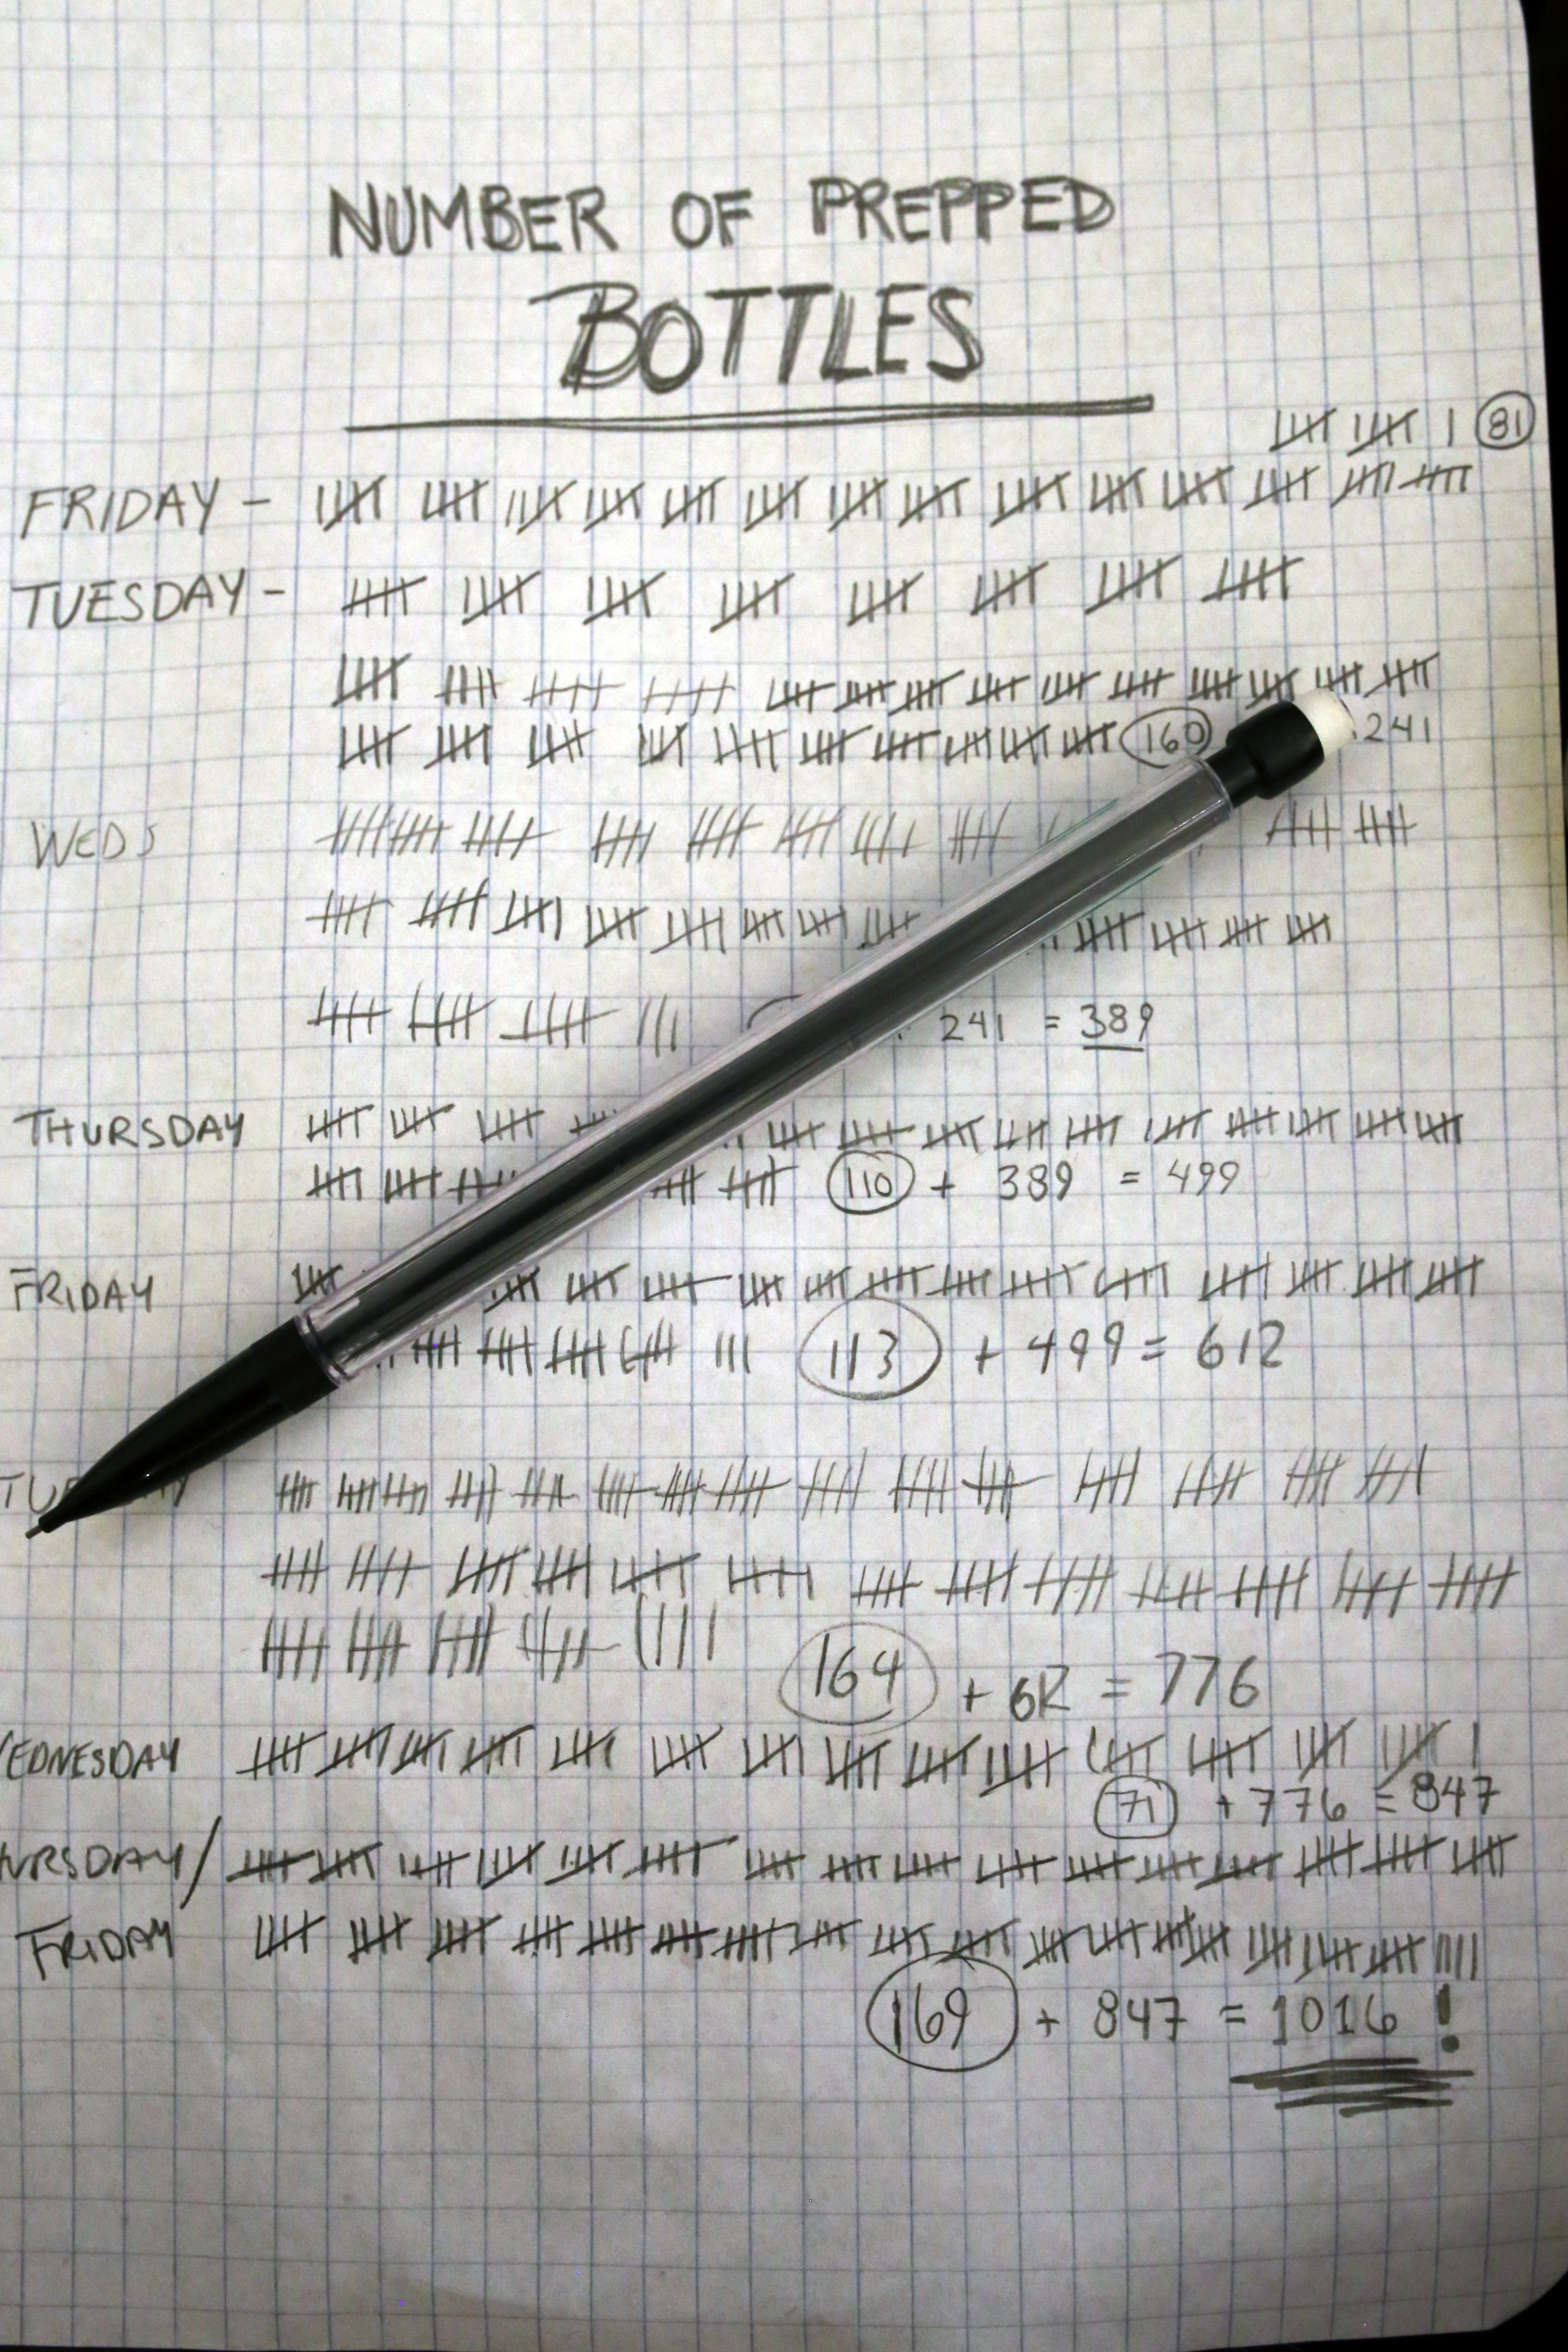 NUMBER OF PREPPED
BOTTLES
81
FRIDAY -
TUESDAY -
160 241
WEDS
241 = 389
THURSDAY
110 + 389 = 499
FRIDAY
113 + 499 = 612
164 + 612 = 776
EDNESDAY
71 + 776 = 847
URSDAY/
FRIDAY
169 + 847 = 1016 !